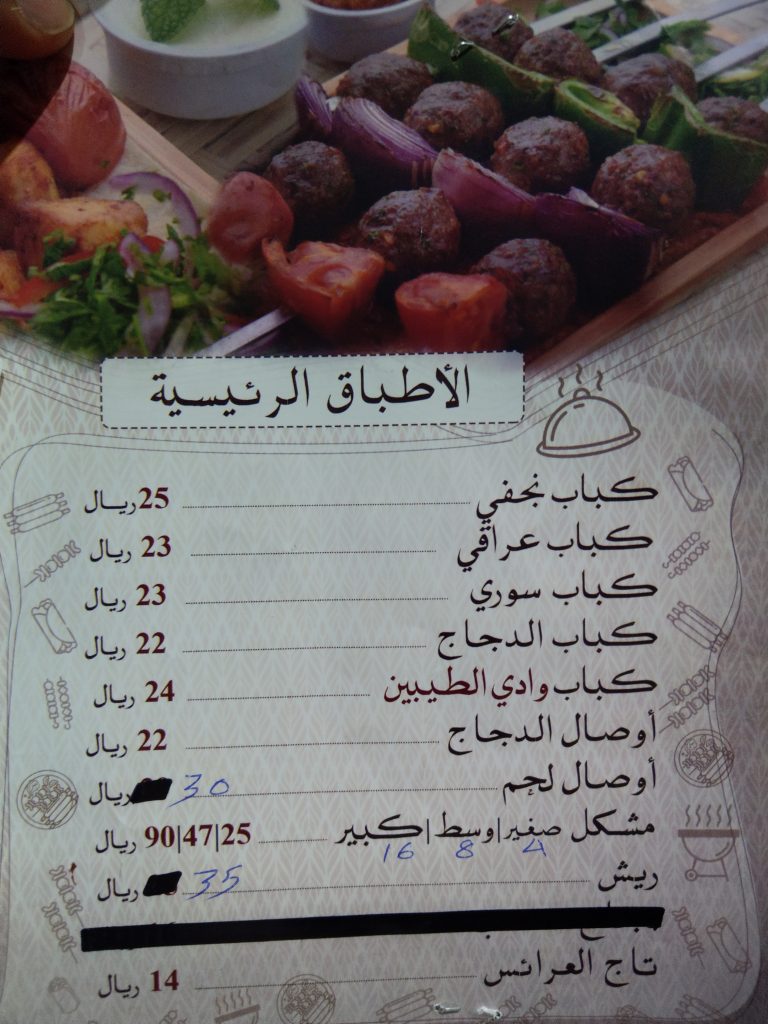 الأطباق الرئيسية
كباب نجفي 25 ريال
كباب عراقي 23 ريال
كباب سوري 23 ريال
كباب الدجاج 22 ريال
كباب وادي الطيبين 24 ريال
أوصال الدجاج 22 ريال
أوصال لحم 30 ريال
مشكل صغير|وسط|كبير 25|47|90 ريال
4 8 16
ريش 35 ريال
تاج العرائس 14 ريال